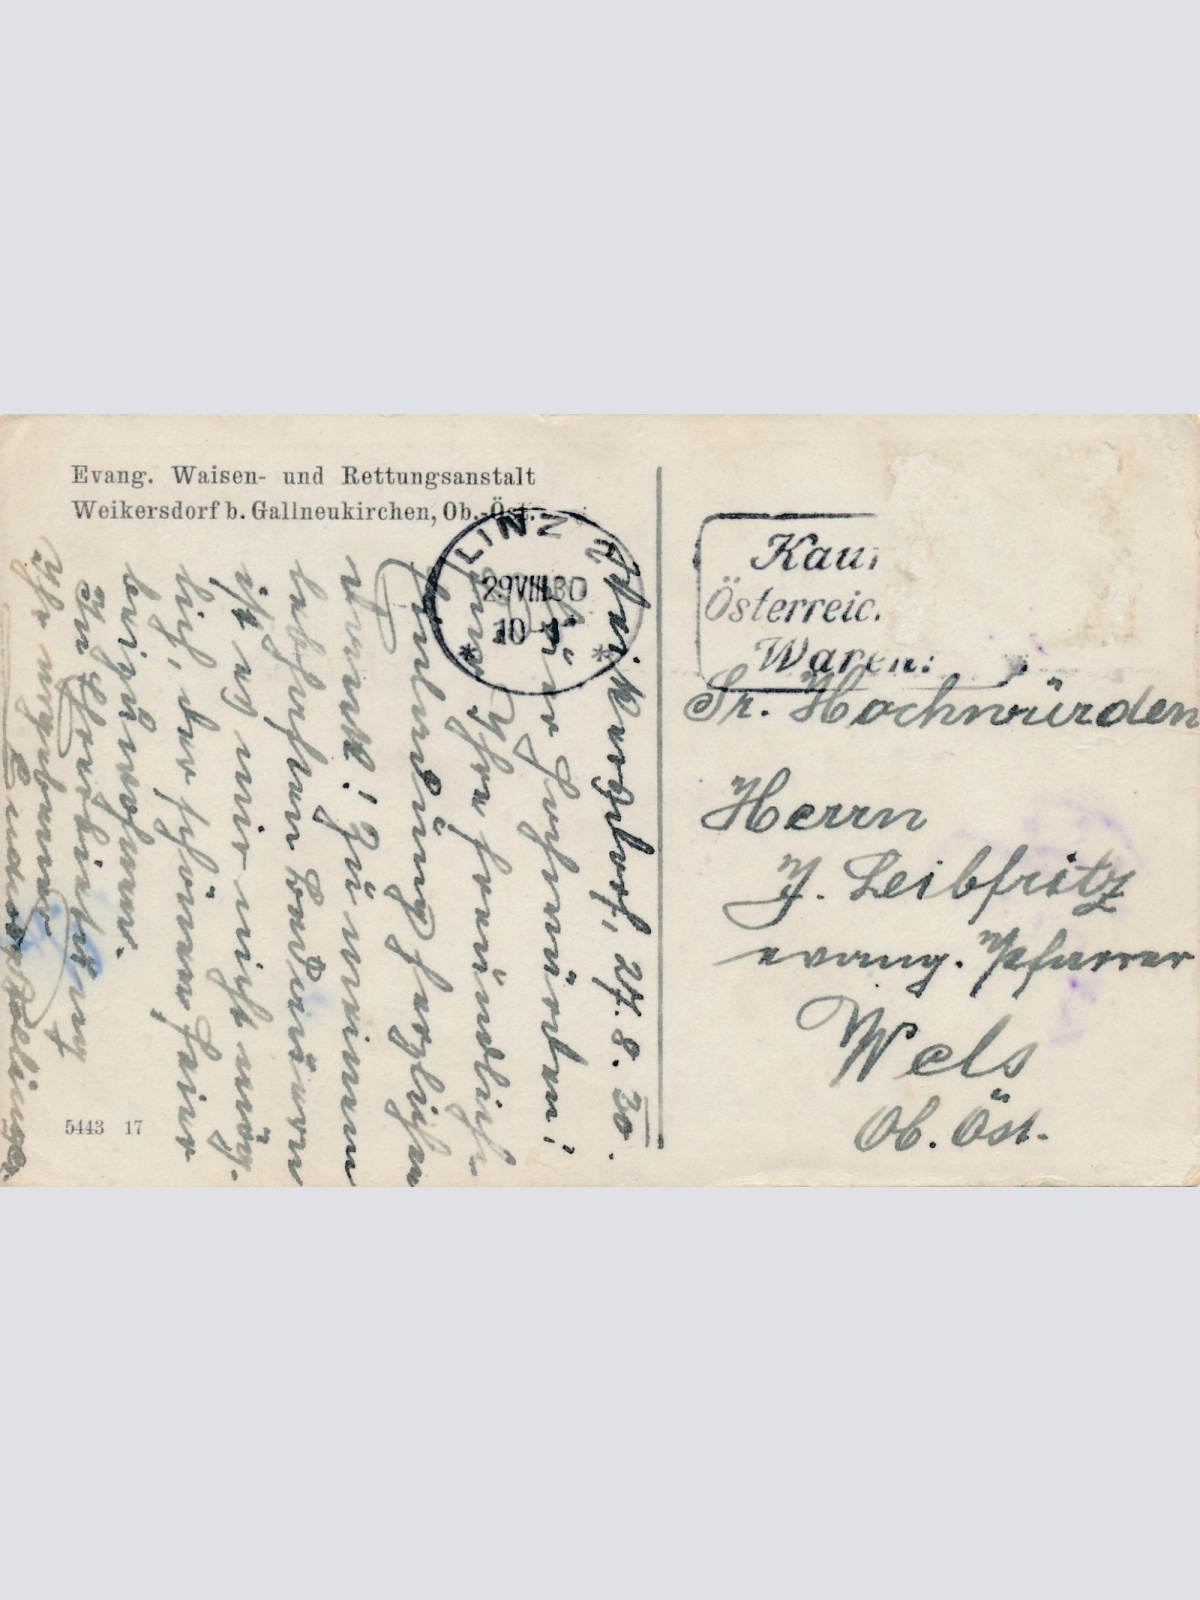 Evang. Waisen- und Rettungsanstalt
Weikersdorf b. Gallneukirchen, Ob.-Öst.
LINZ 2
29 VIII 30
10
Kauf
Österreic.
Waren!
Sr. Hochwürden
Herrn
J. Leibfritz
evang. Pfarrer
Wels
Ob. Öst.
Weikersdorf, 27. 8. 30.
Euer Hochwürden!
Für Ihre freundliche
Einladung herzlichen
Dank! Zu meinem
lebhaften Bedauern
ist es mir nicht mög-
lich, der schönen Feier
beizuwohnen.
In Ehrerbietung
Ihr ergebener
5443 17